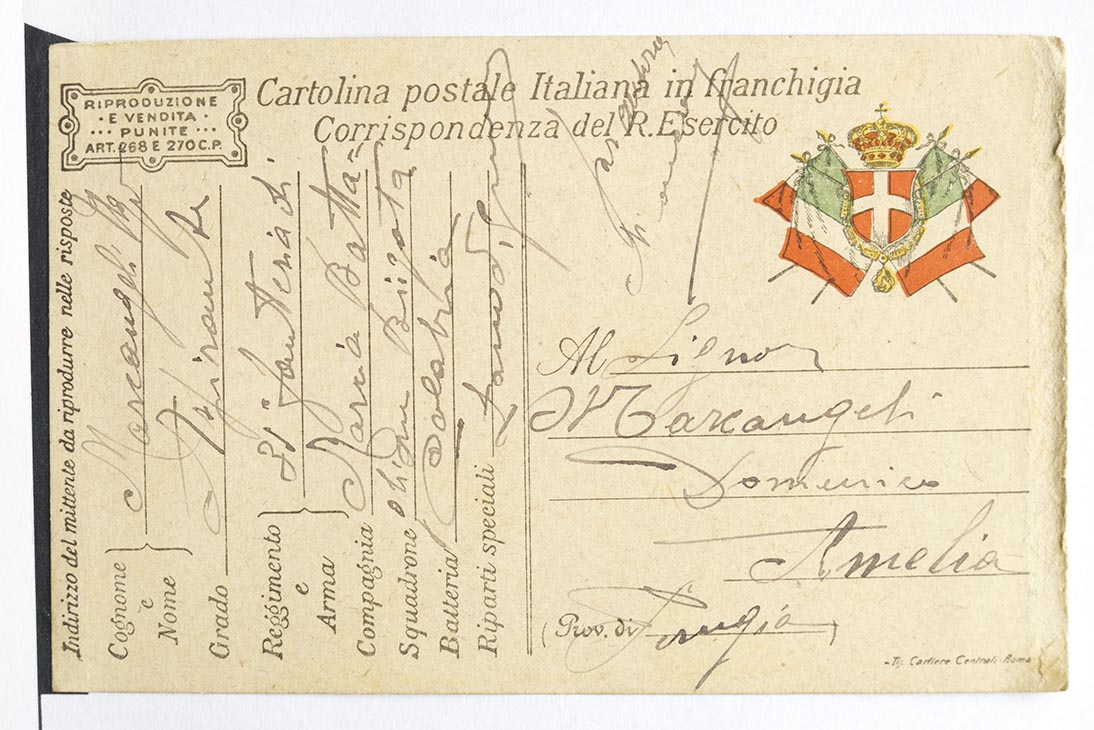 RIPRODUZIONE
· E VENDITA ·
··· PUNITE ···
ART. 268 E 270 C.P.
Cartolina postale Italiana in franchigia
Corrispondenza del R. Esercito
Indirizzo del mittente da riprodurre nelle risposte
Cognome e Nome Marcangeli
Grado Aspirante
Reggimento e Arma 31º fanteria di
Compagnia Marcia Batta
Squadrone Brigata
Batteria Calabria
Riparti speciali
Al Signor
Marcangeli
Domenico
Amelia
(Prov. di Perugia)
- Tip. Cartiere Centrali - Roma